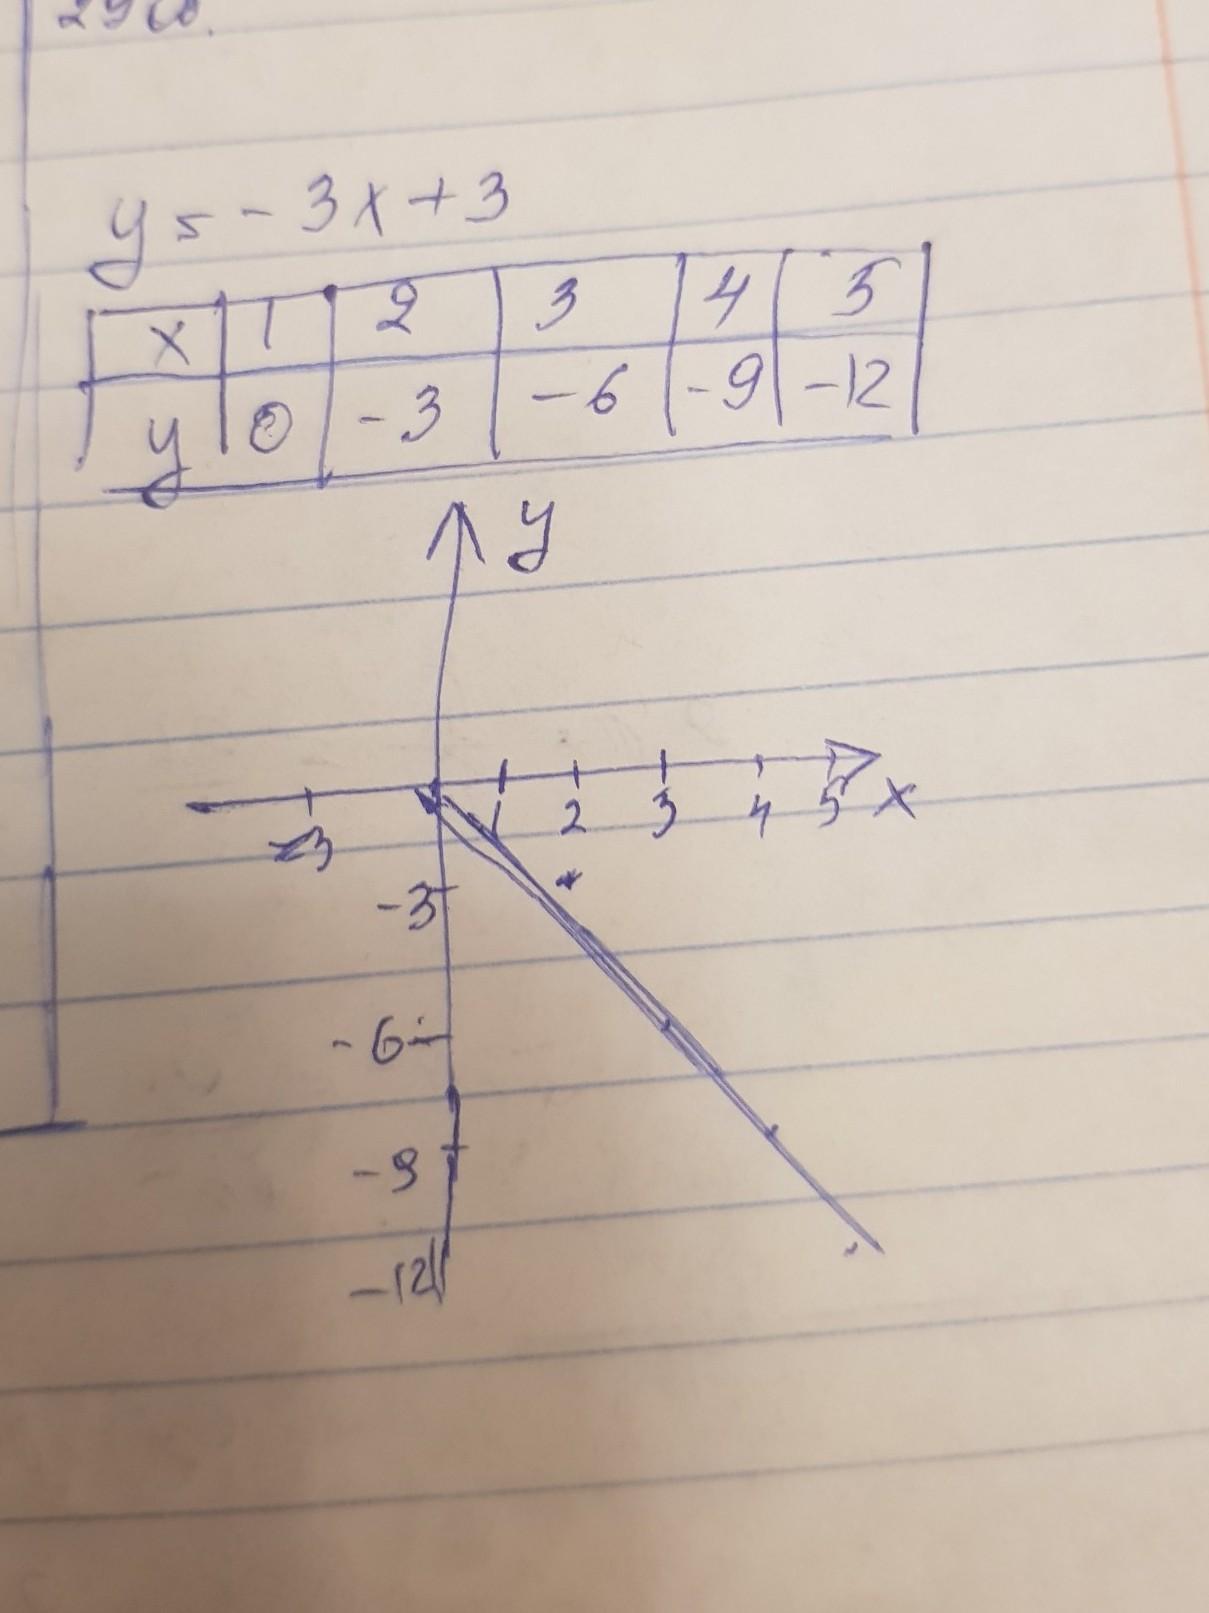 y = - 3x + 3
x 1 2 3 4 5
y 0 -3 -6 -9 -12
y
1 2 3 4 5 x
-3
-3
-6
-9
-12